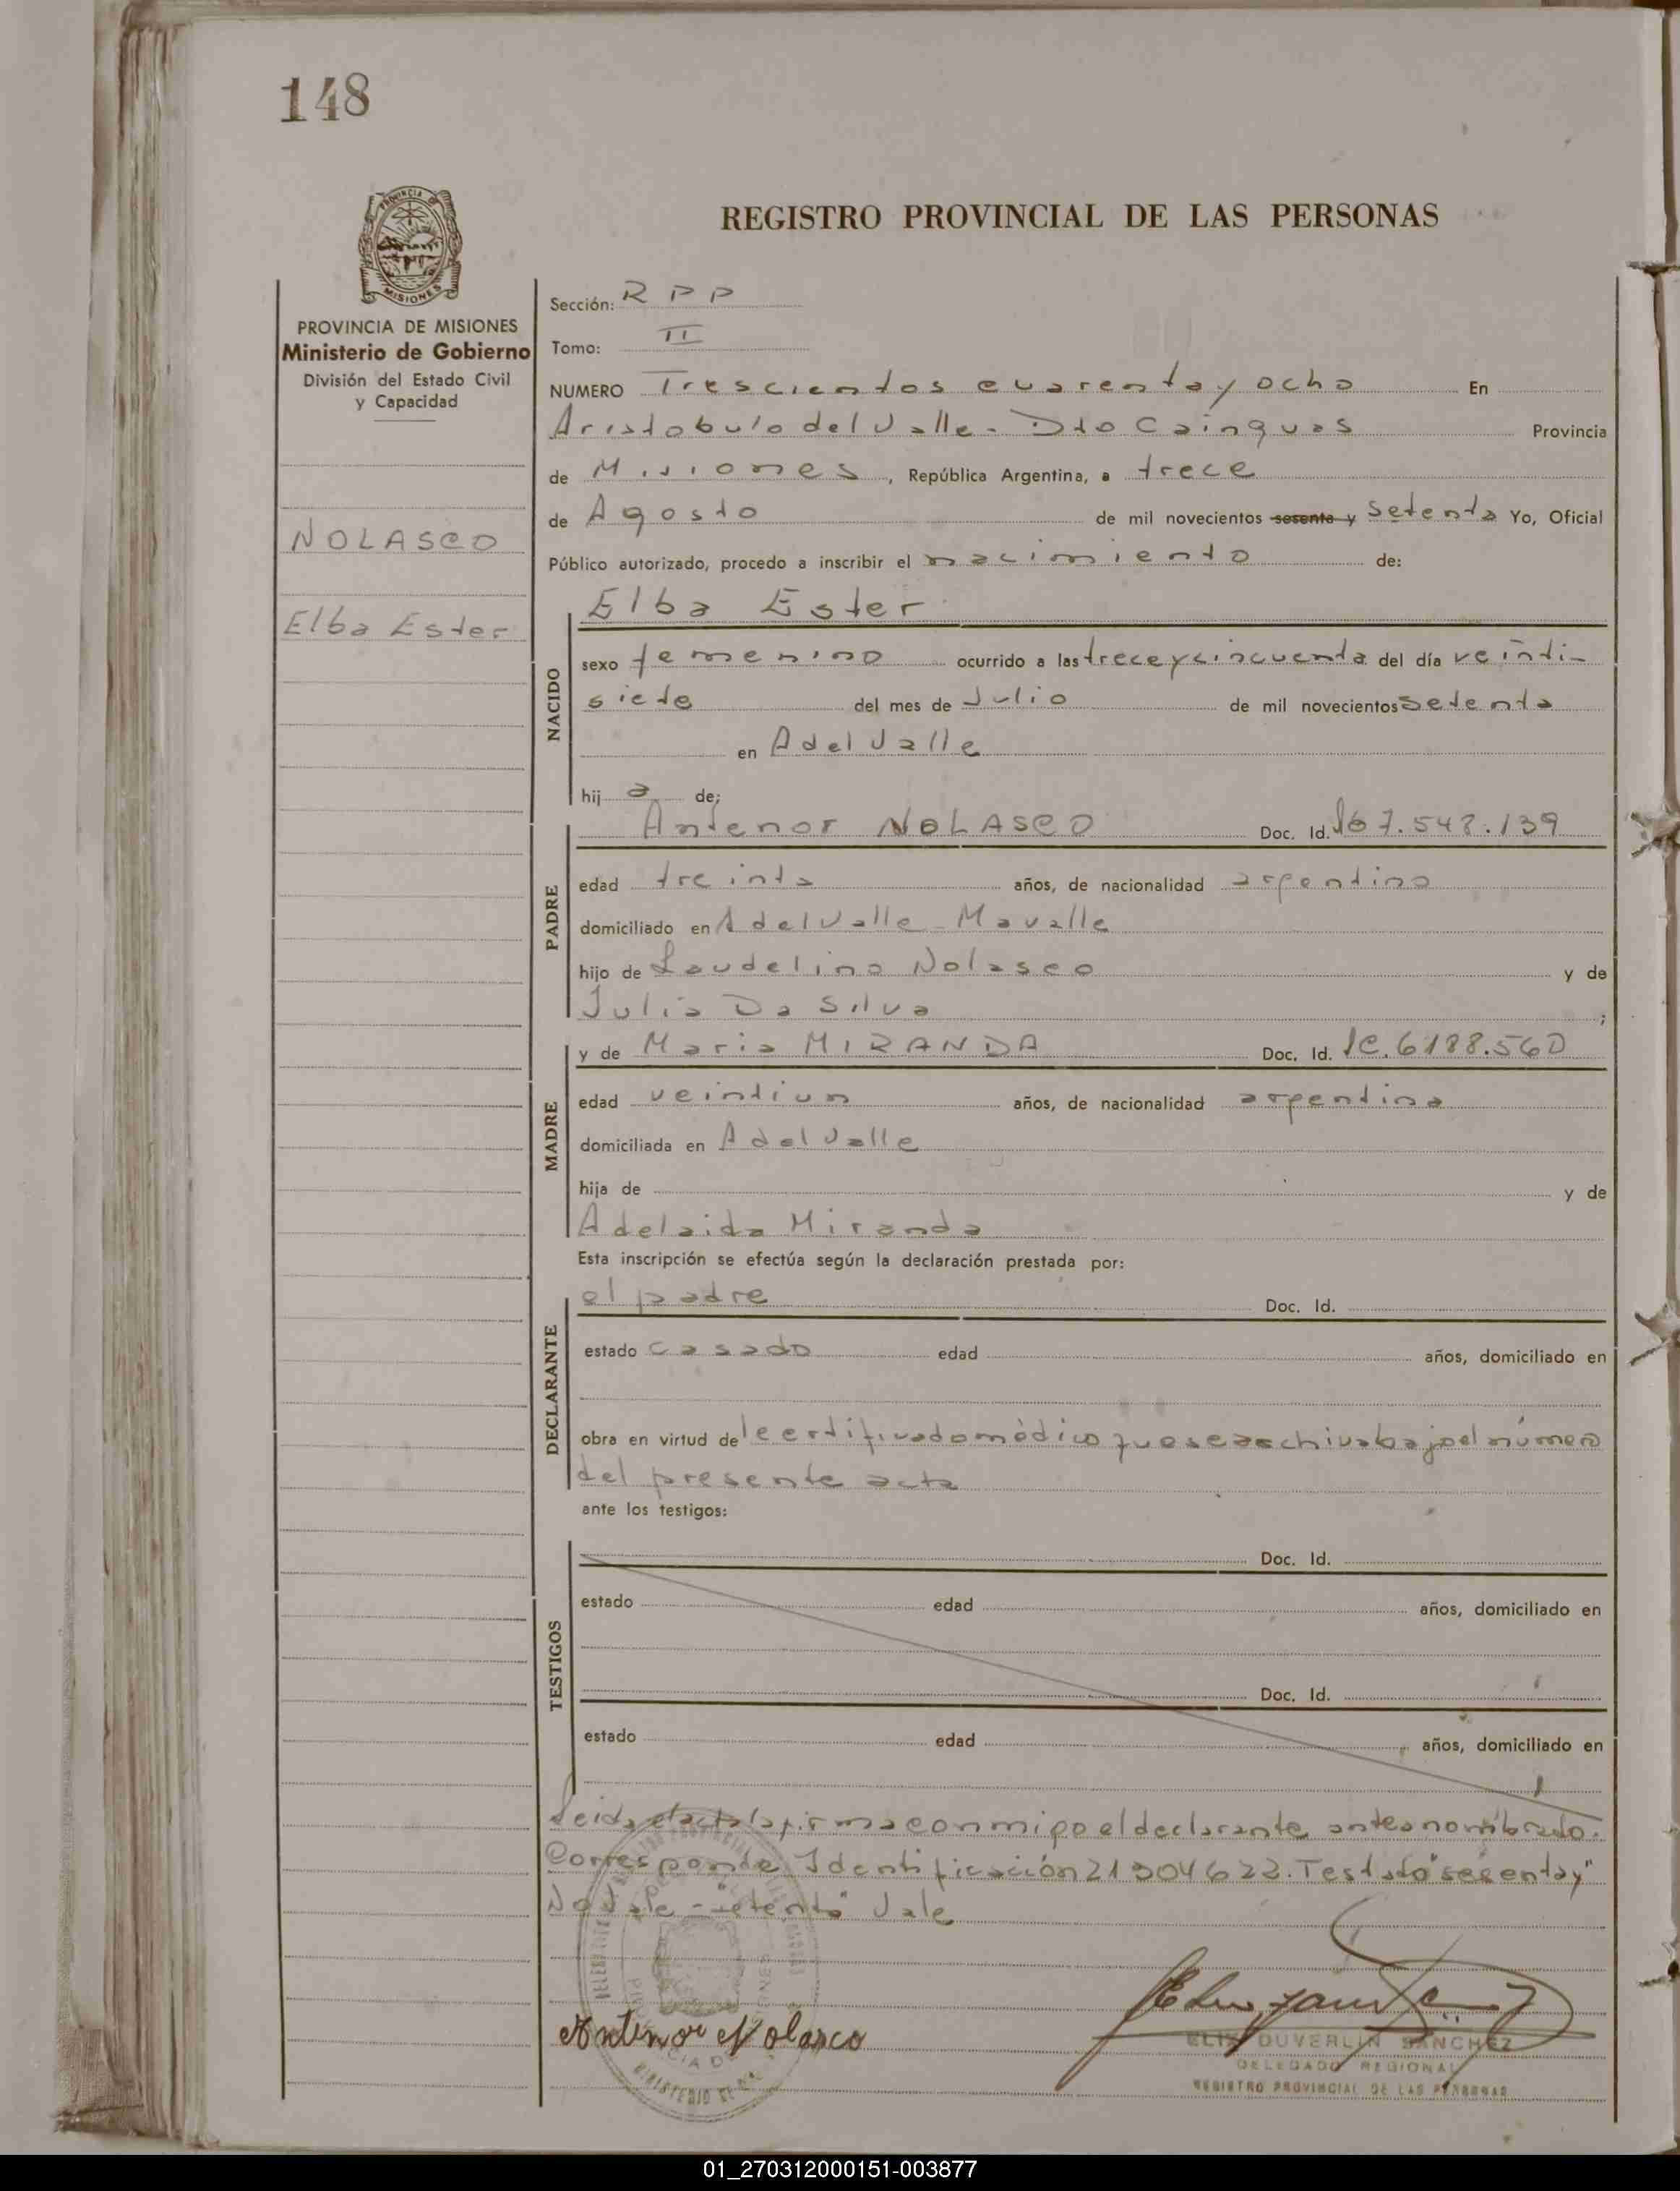 148
PROVINCIA DE
MISIONES
REGISTRO PROVINCIAL DE LAS PERSONAS
PROVINCIA DE MISIONES
Ministerio de Gobierno
División del Estado Civil
y Capacidad
NOLASCO
Elba Ester
Sección: RPP
Tomo: II
NUMERO Trescientos cuarenta y ocho En
Aristobulo del Valle - Dto Cainguas Provincia
de Misiones, República Argentina, a trece
de Agosto de mil novecientos sesenta y Setenta Yo, Oficial
Público autorizado, procedo a inscribir el nacimiento de:
NACIDO
Elba Ester
sexo femenino ocurrido a las trece y cincuenta del día veinti-
siete del mes de Julio de mil novecientos Setenta
en A del Valle
hij a de;
PADRE
Antenor NOLASCO Doc. Id. 7.548.139
edad treinta años, de nacionalidad argentino
domiciliado en A del Valle - Mavalle
hijo de Laudelino Nolasco y de
Julia Da Silva ;
MADRE
y de Maria MIRANDA Doc. Id. 6188.560
edad veintiun años, de nacionalidad argentina
domiciliada en A del Valle
hija de y de
Adelaida Miranda
Esta inscripción se efectúa según la declaración prestada por:
DECLARANTE
el padre Doc. Id.
estado casado edad años, domiciliado en
obra en virtud de certificado médico que se archiva bajo el número
del presente acta
ante los testigos:
TESTIGOS
Doc. Id.
estado edad años, domiciliado en
Doc. Id.
estado edad años, domiciliado en
Leida el acta la firma conmigo el declarante antes nombrado.
Corresponde Identificación 21304622. Testado "sesenta y"
No Vale - "setenta" Vale
Antenor Nolasco
ELIS DUVERLIN SANCHEZ
DELEGADO REGIONAL
REGISTRO PROVINCIAL DE LAS PERSONAS
01_270312000151-003877